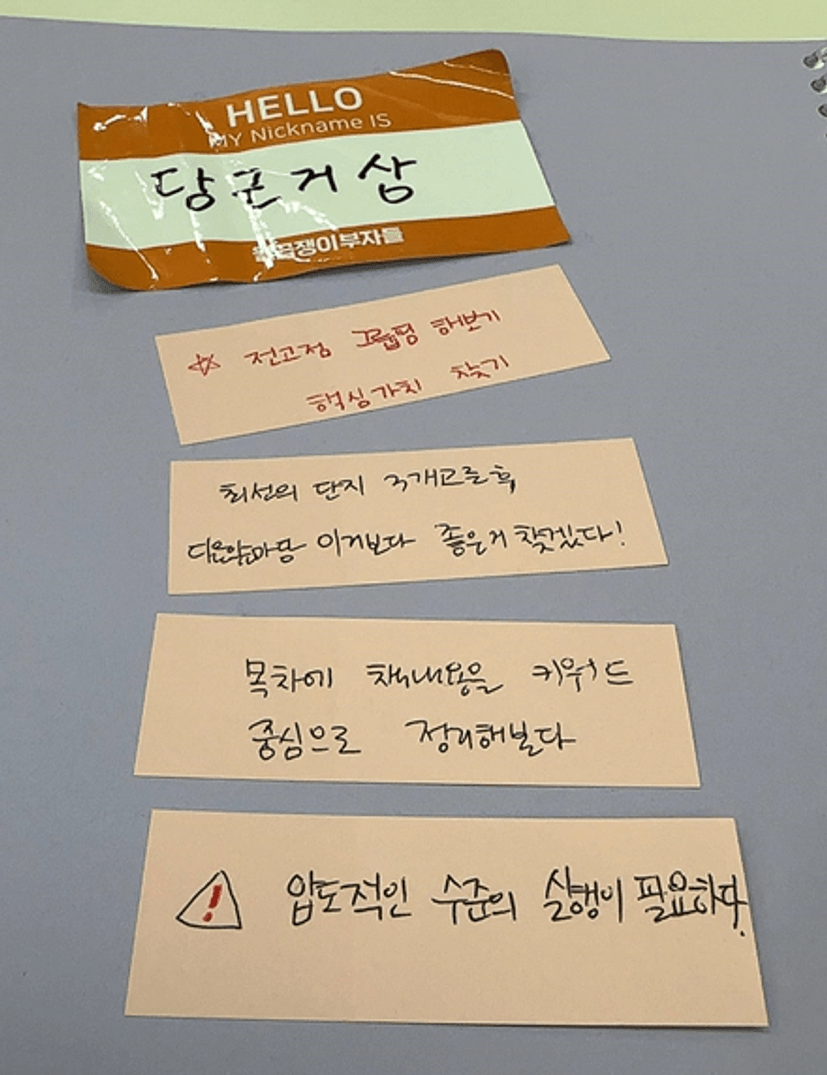 HELLO
MY Nickname IS
당근거상
월급쟁이부자들
☆ 전고점 그룹핑 해보기
핵심가치 찾기
최선의 단지 3개고른후
이거보다 좋은거 찾겠다!
목차에 책내용을 키워드
중심으로 정리해본다
! 압도적인 수준의 실행이 필요하다.